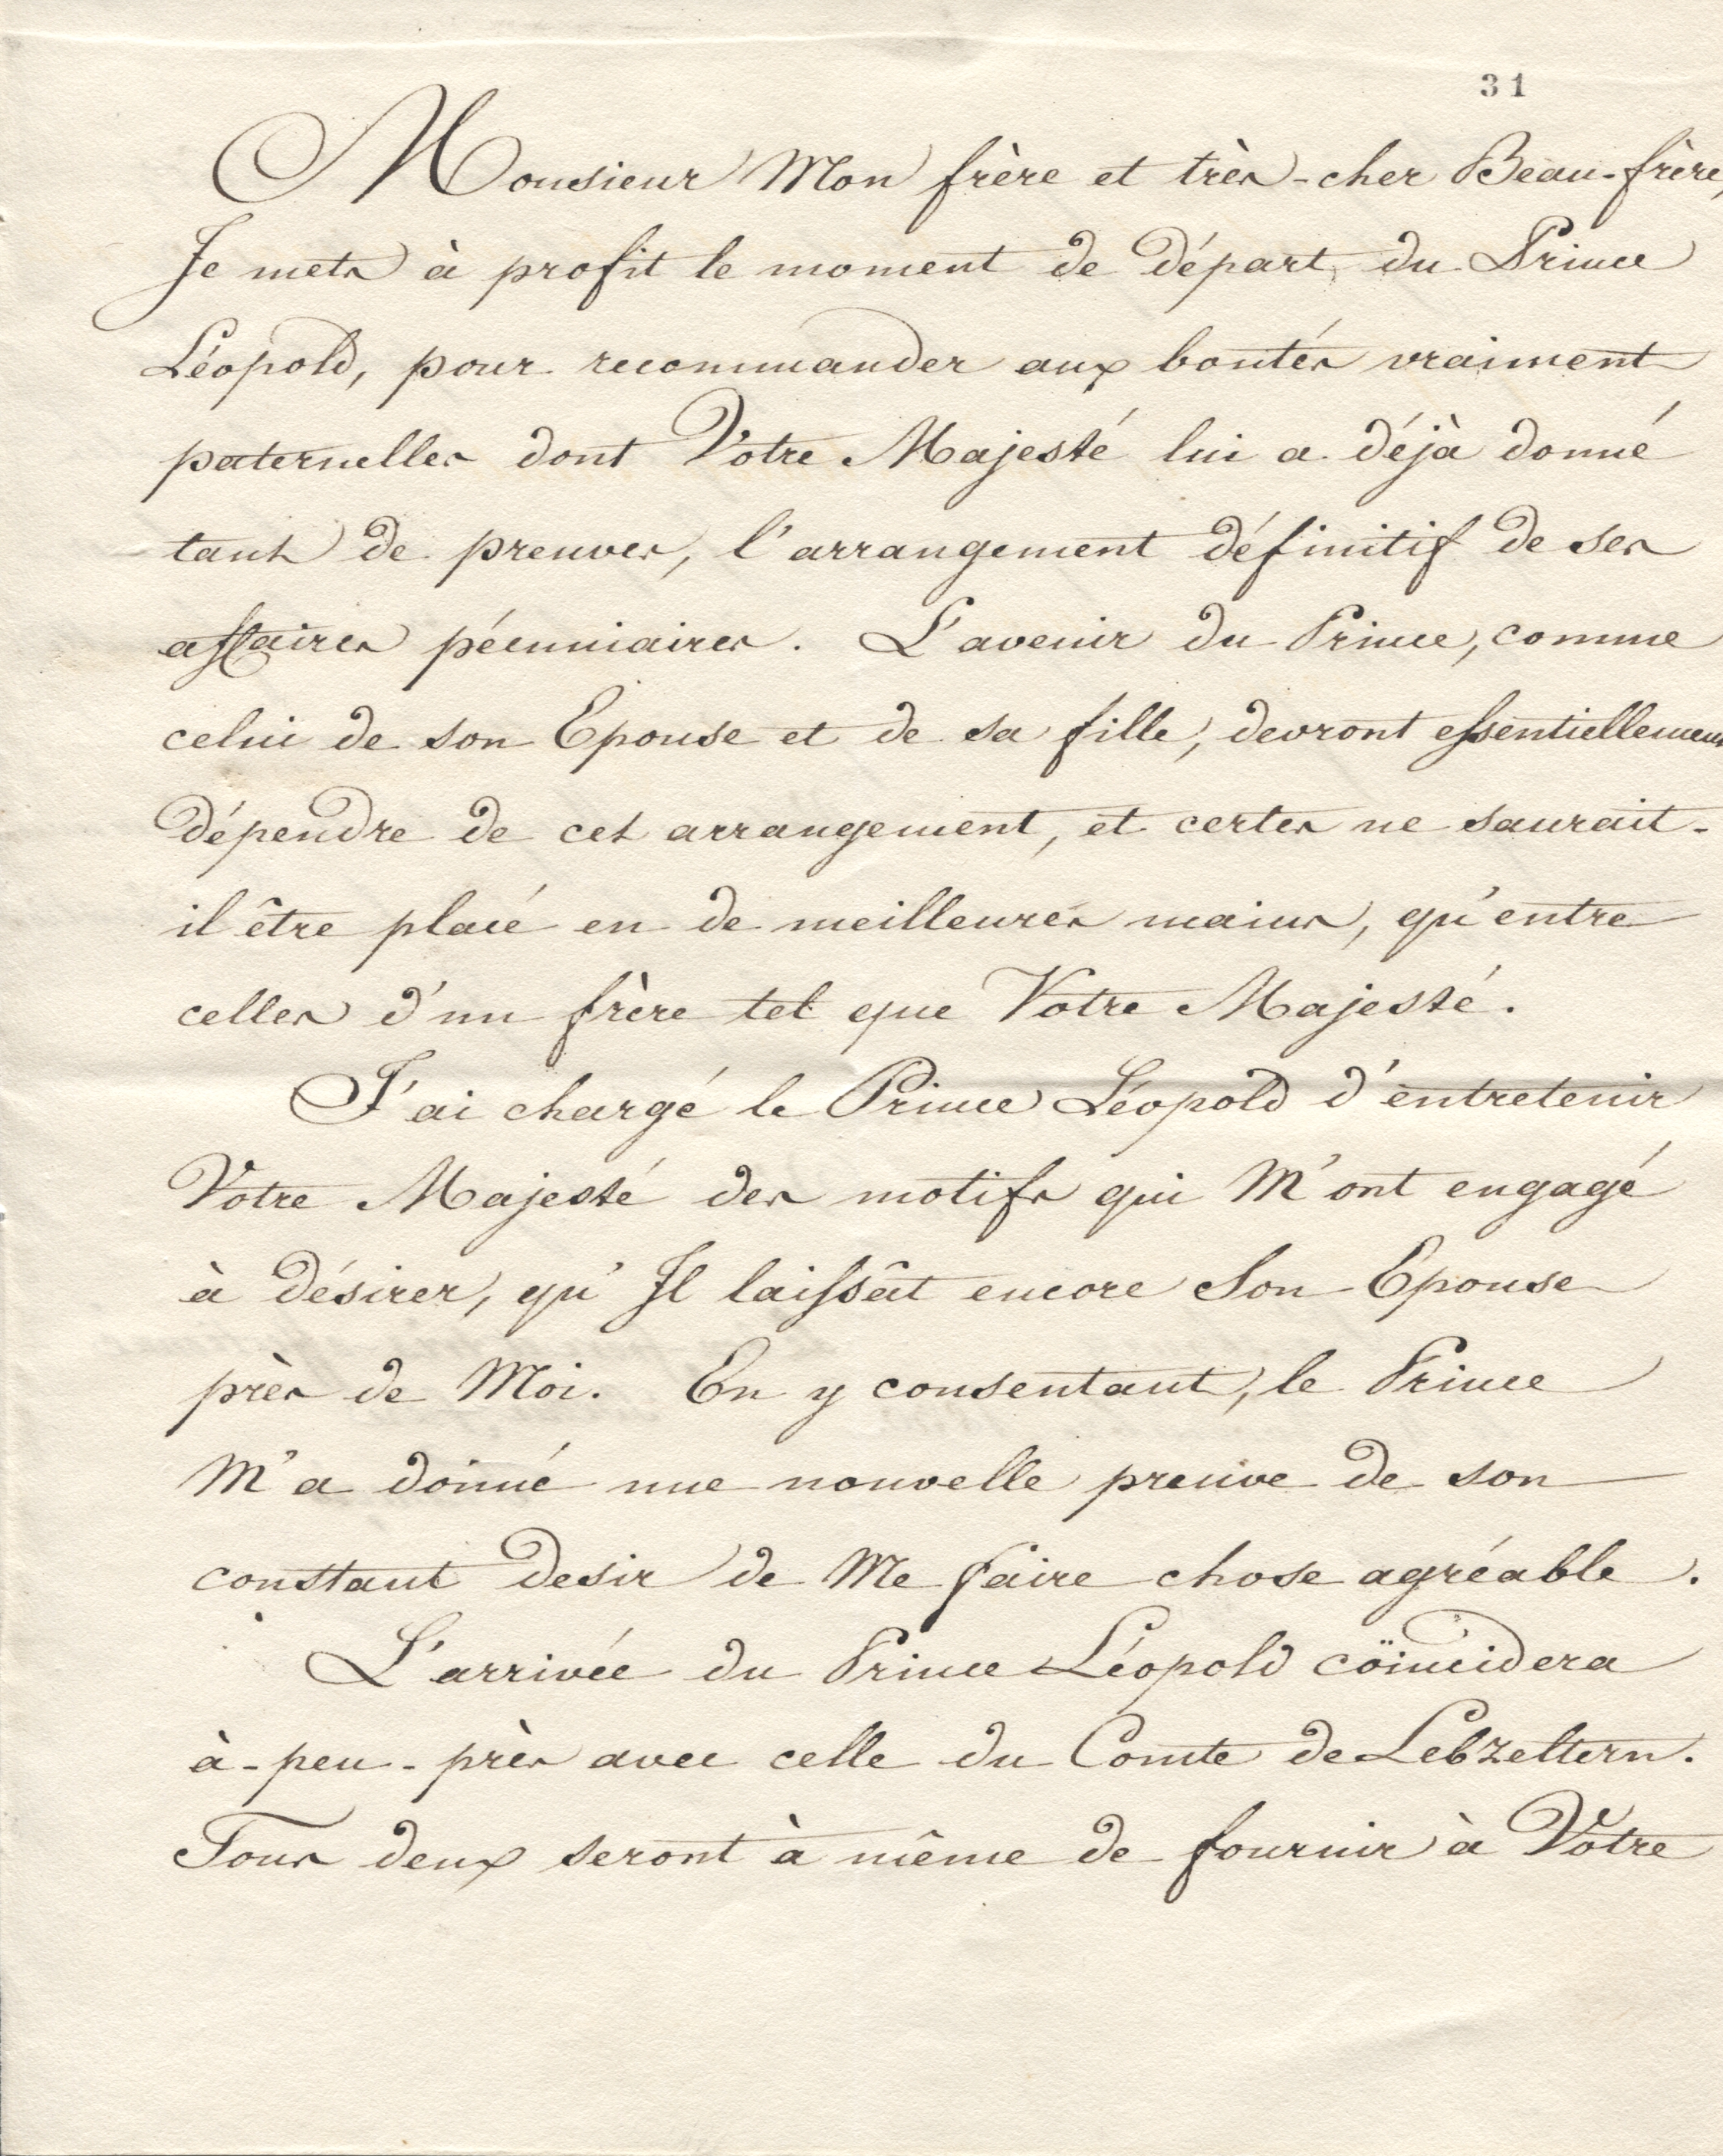 31
Monsieur Mon frère et très-cher Beau-frère,
Je mets à profit le moment de départ du Prince
Léopold, pour recommander aux bontés vraiment
paternelles dont Votre Majesté lui a déjà donné
tant de preuves, l'arrangement définitif de ses
affaires pécuniaires. L'avenir du Prince, comme
celui de son Epouse et de sa fille, devront essentiellement
dépendre de cet arrangement, et certes ne saurait-
il être placé en de meilleures mains, qu'entre
celles d'un frère tel que Votre Majesté.
J'ai chargé le Prince Léopold d'entretenir
Votre Majesté des motifs qui M'ont engagé
à désirer, qu'Il laissât encore Son Epouse
près de Moi. En y consentant, le Prince
M'a donné une nouvelle preuve de son
constant desir de Me faire chose agréable.
L'arrivée du Prince Léopold coïncidera
à-peu-près avec celle du Comte de Lebzeltern.
Tous deux seront à même de fournir à Votre